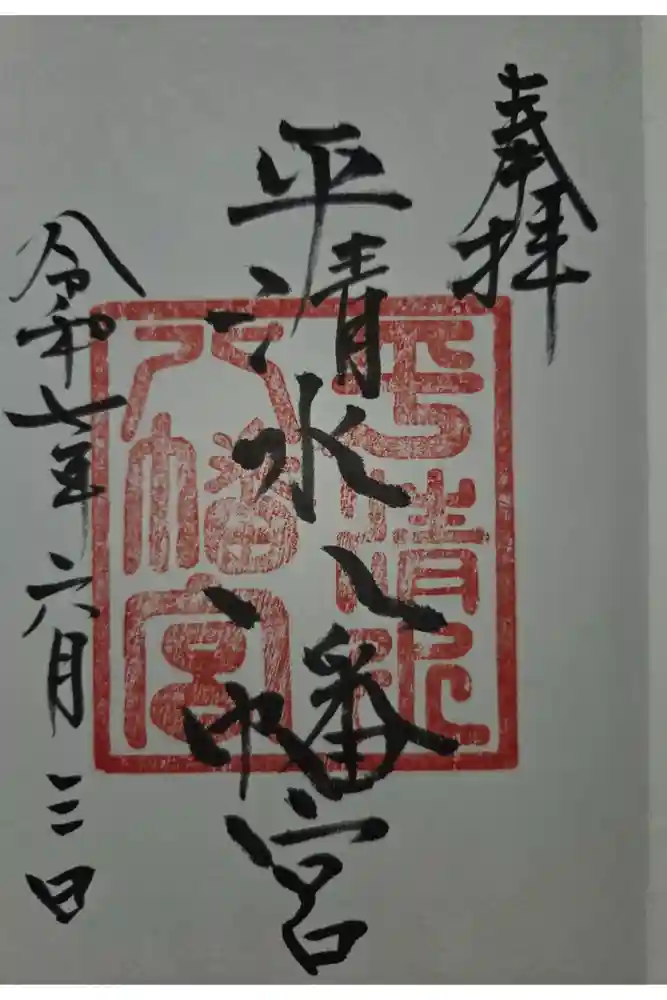 奉拝
平清水八幡宮
令和七年六月三日
平清水八幡宮